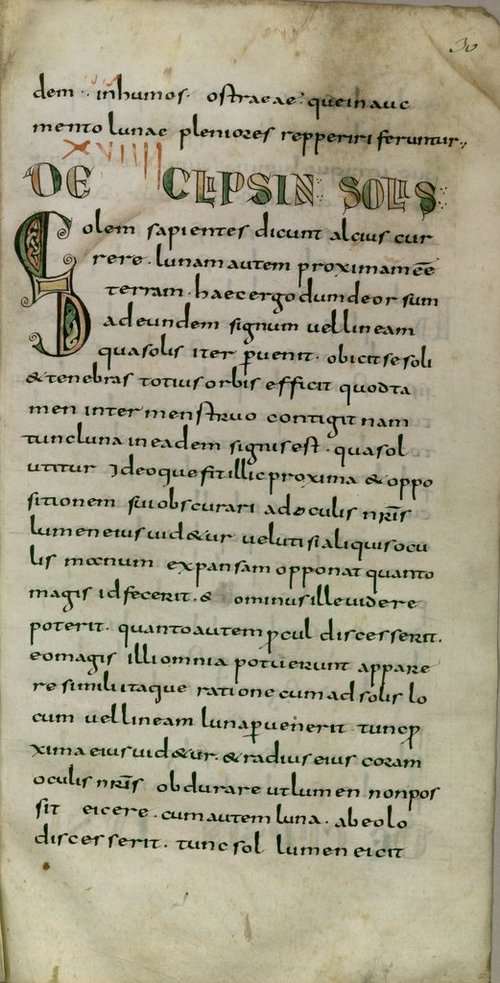 30
dem·inhumos· ostraeae·queinauc
mento lunae pleniores repperiri feruntur·,
XVIIII
DE CLIPSIN SOLIS
Solem sapientes dicunt alcius cur
rere·lunam autem proximam eēe
terram·haec ergo dum deorsum
ad eundem signum uel lineam
qua solis iter ꝑuenit· obicit se soli
& tenebras totius orbis efficit quod ta
men inter menstruo contigit nam
tunc luna in eadem signis est·qua sol
utitur Ideoque fit illic proxima & oppo
sitionem sui obscurari ad oculis nr̄is
lumen eius uid&ur ueluti si aliquis ocu
lis moenum expansam opponat quanto
magis id fecerit·& ominus ille uidere
poterit· quanto autem ꝓcul discesserit·
eo magis illi omnia potuerunt appare
re simili itaque ratione cum ad solis lo
cum uel lineam luna ꝑuenerit tunc ꝓ
xima eius uid&ur·& radius eius coram
oculis nr̄is obdurare ut lumen non pos
sit eicere·cum autem luna·ab eo lo
discesserit·tunc sol lumen eicit